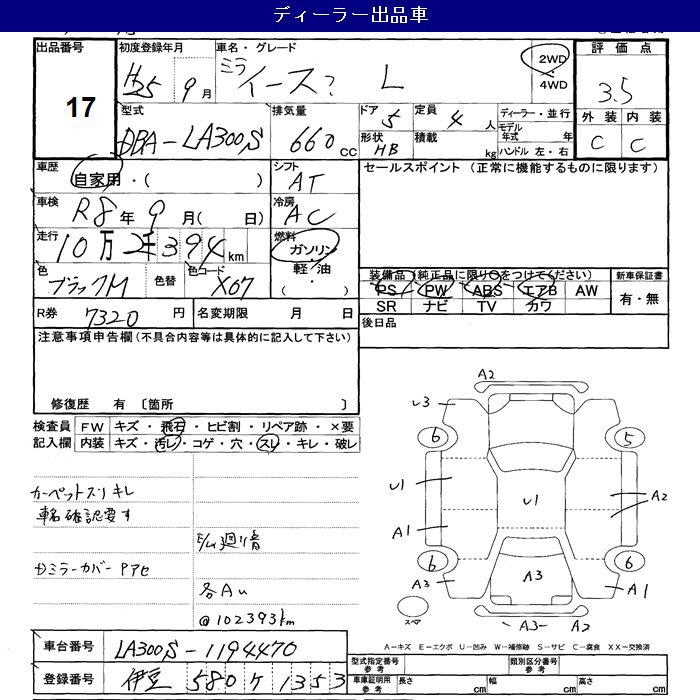 ディーラー出品車
出品番号
17
初度登録年月
H25 9月
車名・グレード
ミラ イース? L
2WD
4WD
評価点
3.5
外装 内装
C C
型式
DBA-LA300S
排気量
660cc
ドア 5
形状 HB
定員 4人
積載 kg
ディーラー・並行
モデル年式 年
ハンドル 左・右
車歴
自家用・( )
シフト
AT
セールスポイント (正常に機能するものに限ります)
車検
R8年9月( 日)
冷房
AC
走行
10万2千394km
燃料
ガソリン
軽・油
・( )
色
ブラックM
色替
色コード
X07
装備品(純正品に限り○をつけてください)
PS PW ABS エアB AW
SR ナビ TV カワ
新車保証書
有・無
R券 7320円
名変期限 月 日
後日品
注意事項申告欄(不具合内容等は具体的に記入して下さい)
修復歴 有 〔箇所 〕
検査員 FW キズ・飛石・ヒビ割・リペア跡・×要
記入欄 内装 キズ・汚レ・コゲ・穴・スレ・キレ・破レ
カーペットスリキレ
車名確認要す
E/G廻り音
ドミラーカバーPアセ
各AU
@102393km
A2
U3
6
5
U1
U1
A2
A1
6
6
A3
A3
A1
スペア
A3
A2
A-キズ E-エクボ U-凹み W-補修跡 S-サビ C-腐食 XX-交換済
車台番号 LA300S-1194470
登録番号 伊豆 580 ケ 1353
型式指定番号
参考
類別区分番号
参考
車庫証明用
参考
長さ cm
幅 cm
高さ cm